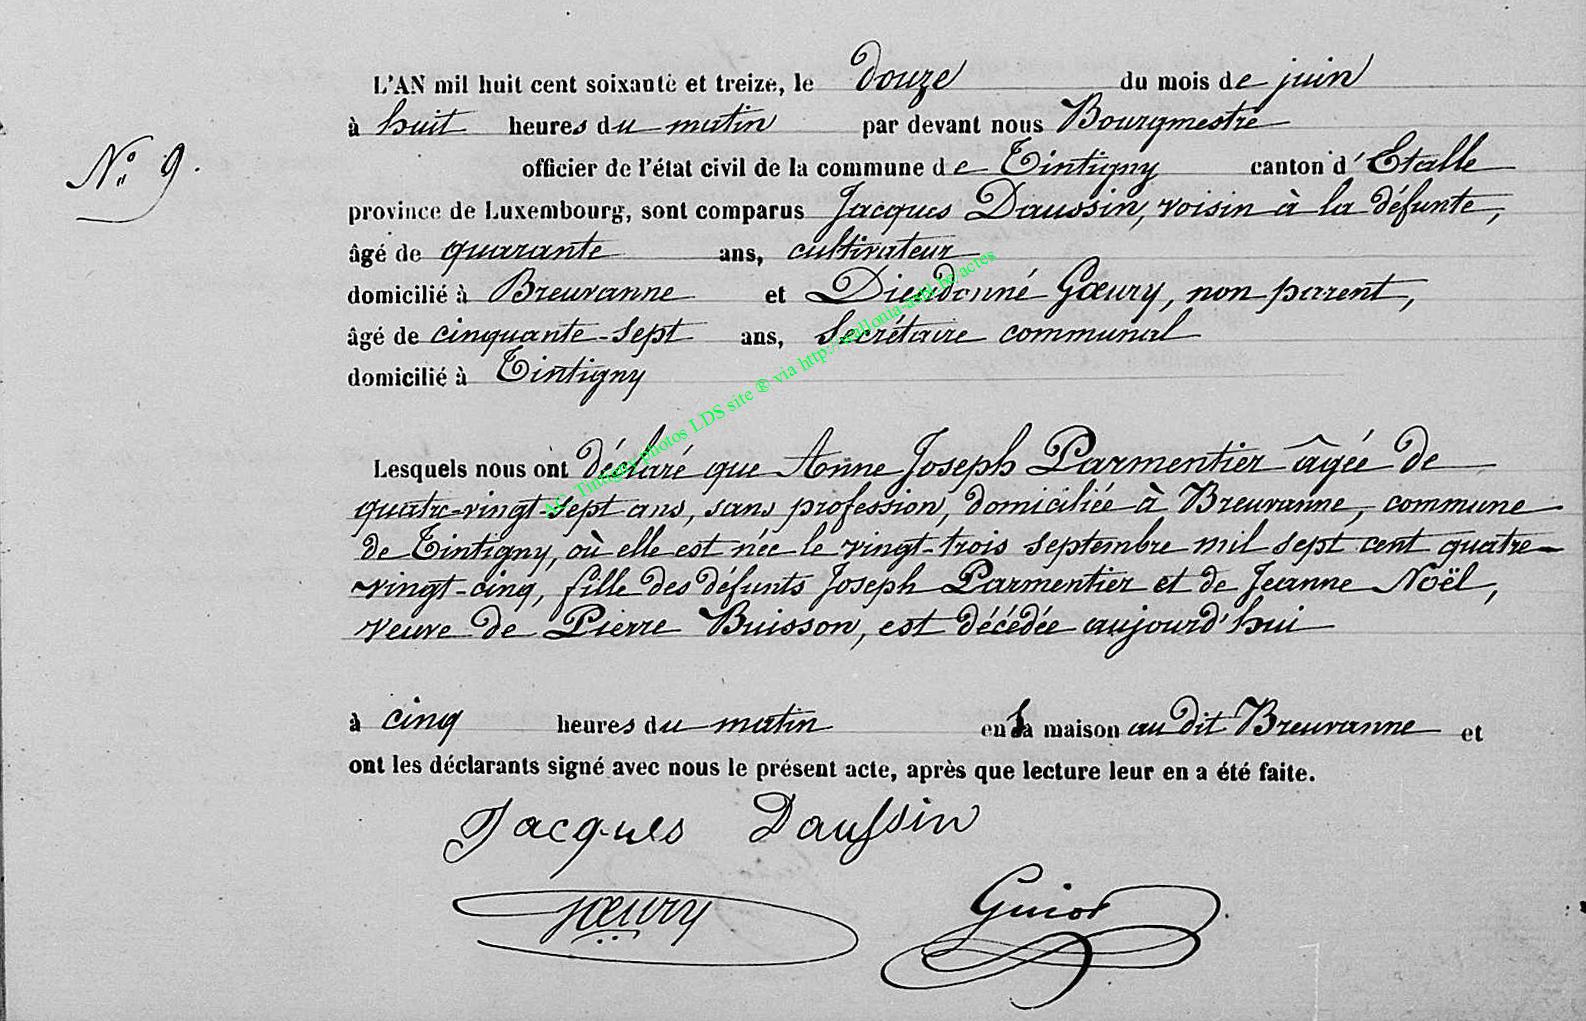 L'AN mil huit cent soixante et treize, le douze du mois de juin
à huit heures du matin par devant nous Bourgmestre
N° 9.
officier de l'état civil de la commune de Tintigny canton d'Etalle
province de Luxembourg, sont comparus Jacques Daussin, voisin à la défunte,
âgé de quarante ans, cultivateur
domicilié à Breuvanne et Dieudonné Gœury, non parent,
âgé de cinquante-sept ans, Secrétaire communal
domicilié à Tintigny
AC Tintigny photos LDS site ® via http://wallonia-asbl.be/actes
Lesquels nous ont déclaré que Anne Joseph Parmentier âgée de
quatre-vingt-sept ans, sans profession, domiciliée à Breuvanne, commune
de Tintigny, où elle est née le vingt-trois septembre mil sept cent quatre-
vingt-cinq, fille des défunts Joseph Parmentier et de Jeanne Noël,
veuve de Pierre Buisson, est décédée aujourd'hui
à cinq heures du matin en sa maison au dit Breuvanne et
ont les déclarants signé avec nous le présent acte, après que lecture leur en a été faite.
Jacques Daussin
Gœury Guiot